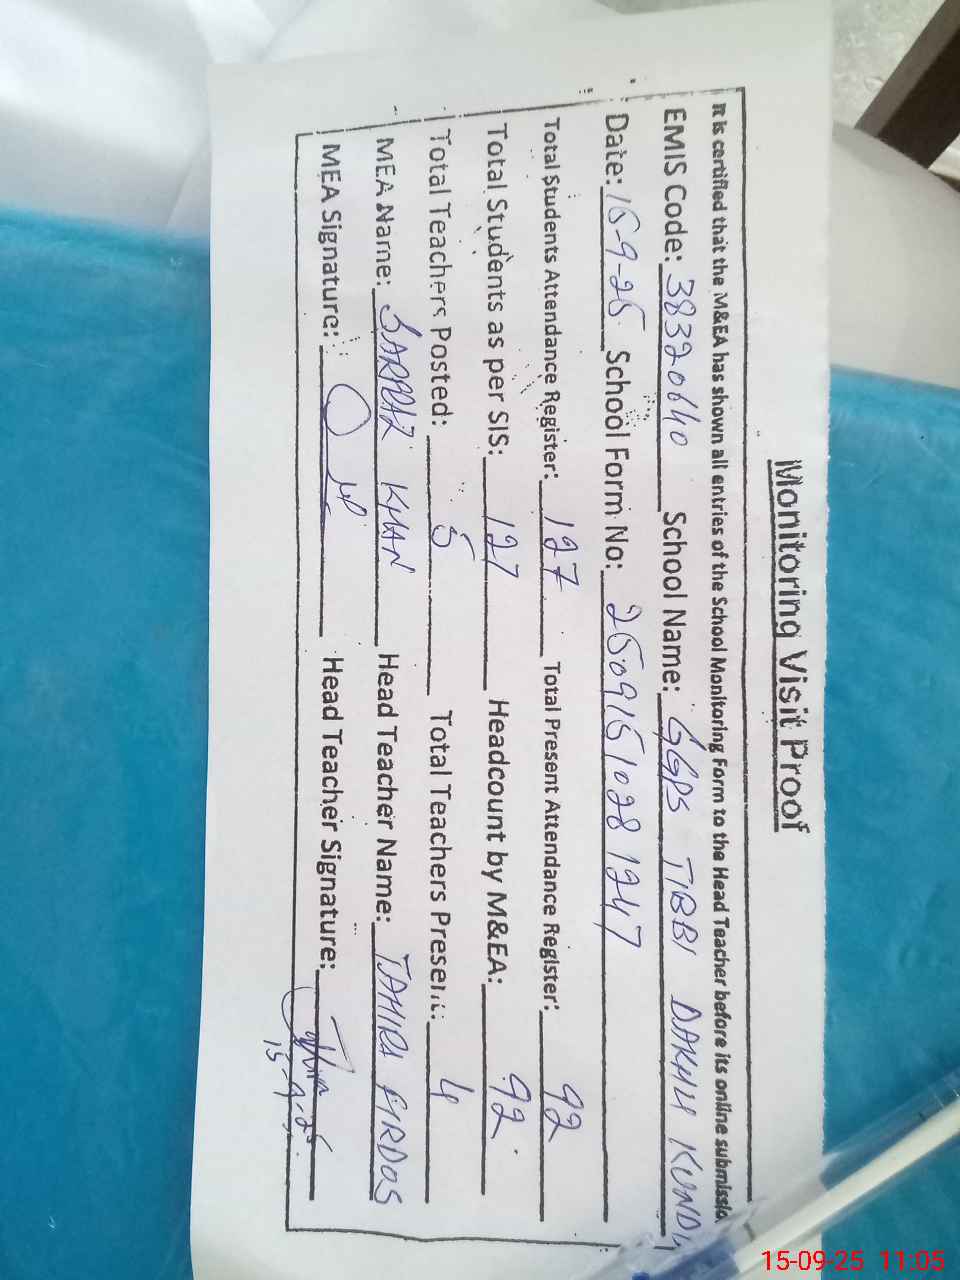 Monitoring Visit Proof
It is certified that the M&EA has shown all entries of the School Monitoring Form to the Head Teacher before its online submissio
EMIS Code: 38320640 School Name: GGPS TIBBI DAKHLI KUNDI
Date: 15-9-25 School Form No: 25091510281247
Total Students Attendance Register: 127 Total Present Attendance Register: 92
Total Students as per SIS: 127 Headcount by M&EA: 92
Total Teachers Posted: 5 Total Teachers Present: 4
MEA Name: SARFRAZ KHAN Head Teacher Name: TAHIRA FIRDOS
MEA Signature: Head Teacher Signature:
15-9-25
15-09-25 11:05